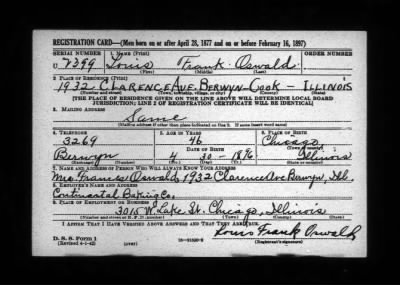 REGISTRATION CARD—(Men born on or after April 28, 1877 and on or before February 16, 1897)
SERIAL NUMBER 1. NAME (Print) ORDER NUMBER
U 2399 Louis Frank Oswald
(First) (Middle) (Last)
2. PLACE OF RESIDENCE (Print)
1932 CLARENCE AVE. BERWYN - COOK - ILLINOIS
(Number and street) (Town, township, village, or city) (County) (State)
[THE PLACE OF RESIDENCE GIVEN ON THE LINE ABOVE WILL DETERMINE LOCAL BOARD
JURISDICTION; LINE 2 OF REGISTRATION CERTIFICATE WILL BE IDENTICAL]
3. MAILING ADDRESS
Same
(Mailing address if other than place indicated on line 2. If same insert word same)
4. TELEPHONE 5. AGE IN YEARS 6. PLACE OF BIRTH
3269 46 Chicago
DATE OF BIRTH (Town or county)
Berwyn 4 30 - 1896 Illinois
(Exchange) (Number) (Mo.) (Day) (Yr.) (State or country)
7. NAME AND ADDRESS OF PERSON WHO WILL ALWAYS KNOW YOUR ADDRESS
Mrs. Frances Oswald, 1932 Clarence Ave Berwyn, Ill.
8. EMPLOYER'S NAME AND ADDRESS
Continental Baking Co.
9. PLACE OF EMPLOYMENT OR BUSINESS
3015 W. Lake St. Chicago, Illinois
(Number and street or R. F. D. number) (Town) (County) (State)
I AFFIRM THAT I HAVE VERIFIED ABOVE ANSWERS AND THAT THEY ARE TRUE.
Louis Frank Oswald
D. S. S. Form 1
(Revised 4-1-42) (over) (Registrant's signature)